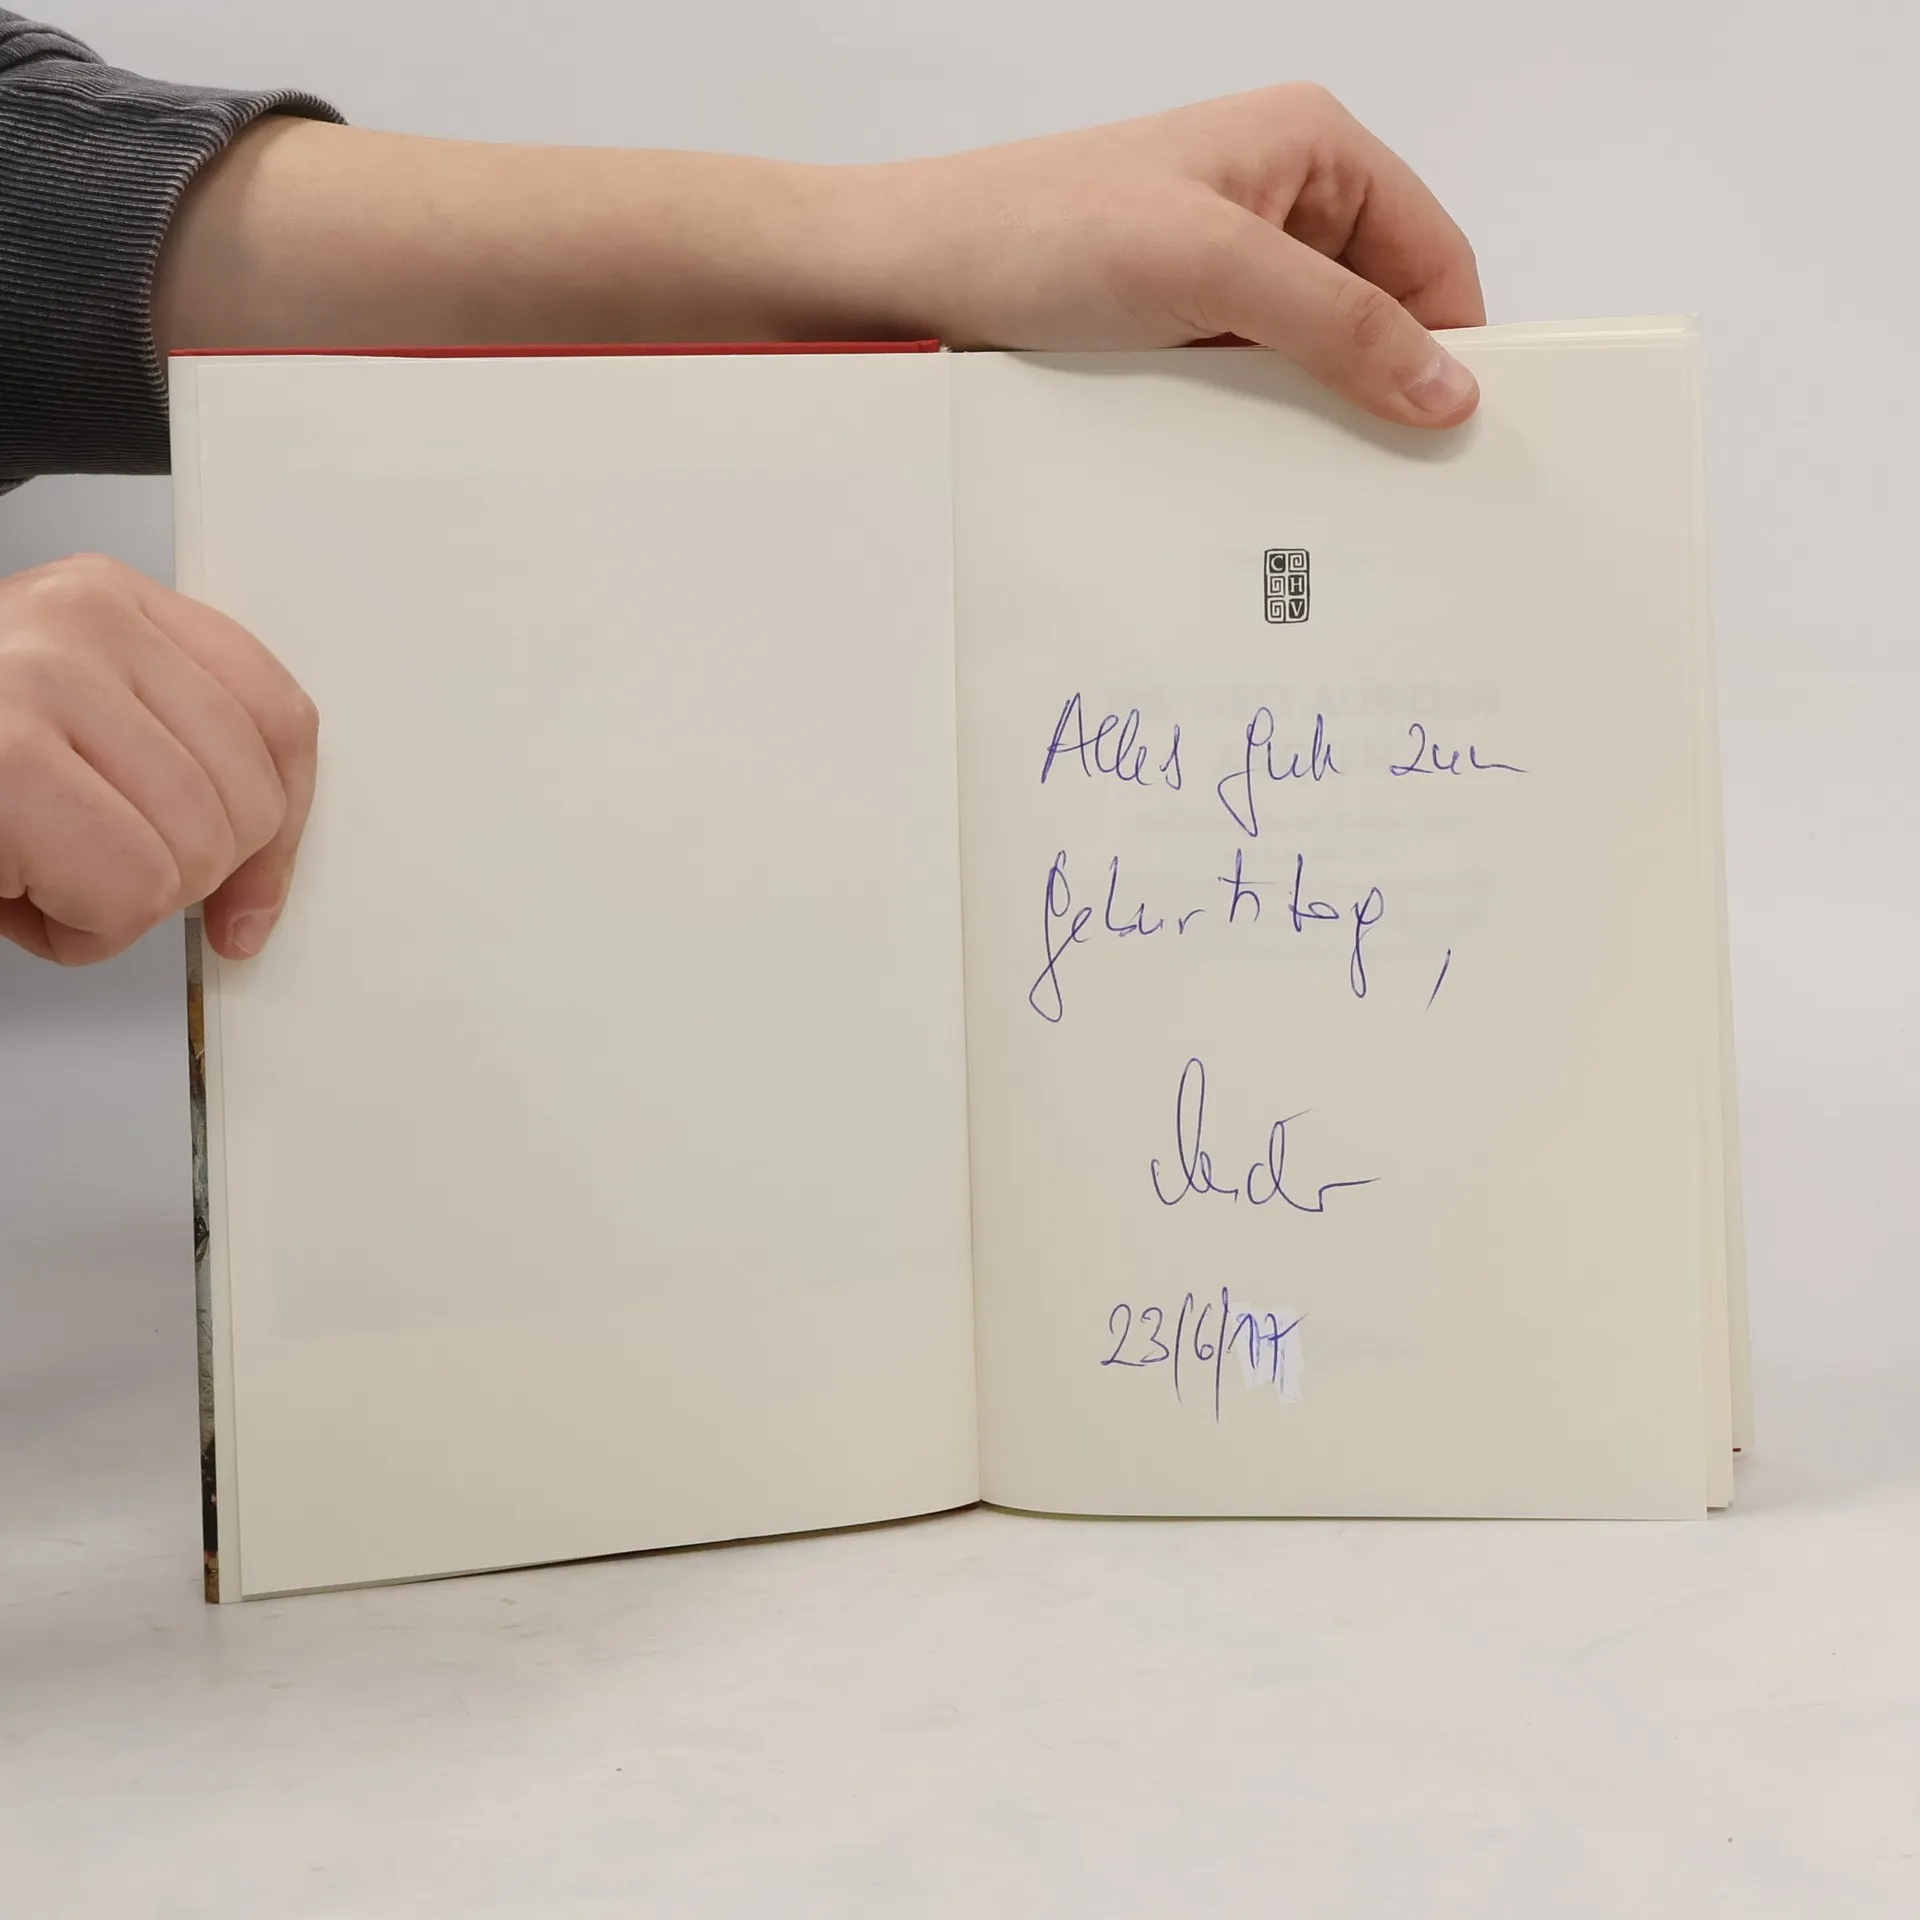 C
H
V
Alles Gute zum
Geburtstag,
23/6/17